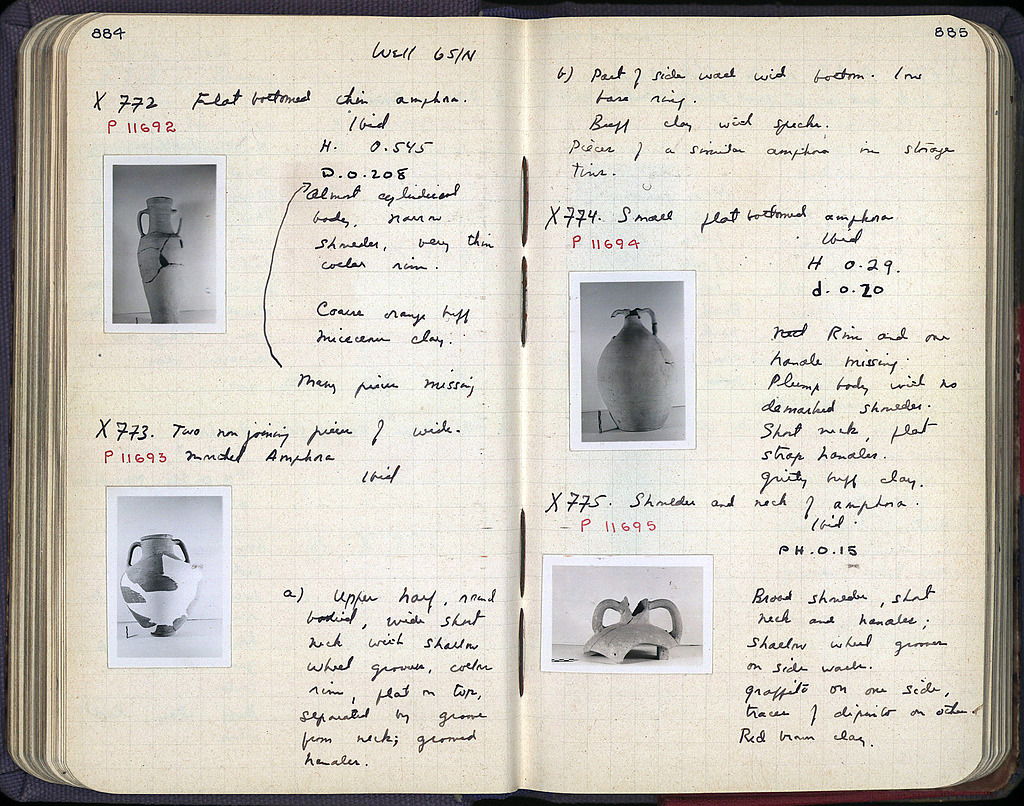 884
Well 65/N
X 772 Flat bottomed thin amphora.
P 11692
Ibid
H. 0.545
D. 0.208
Almost cylindrical
body, narrow
shoulder, very thin
collar rim.
Coarse orange buff
micaceous clay.
Many pieces missing
X 773. Two non joining pieces of wide.
P 11693 mouthed Amphora
Ibid
a) Upper half, round
bodied, wide short
neck with shallow
wheel grooves, collar
rim, flat on top,
separated by groove
from neck; grooved
handles.
885
b) Part of side wall with bottom. low
base ring.
Buff clay with specks.
Pieces of a similar amphora in storage
tins.
X 774. Small flat bottomed amphora
P 11694
Ibid
H 0.29.
d. 0.20
Rim and one
handle missing.
Plump body with no
demarked shoulder.
Short neck, flat
strap handles.
gritty buff clay.
X 775. Shoulder and neck of amphora.
P 11695
Ibid.
PH. 0.15
Broad shoulder, short
neck and handles;
shallow wheel grooves
on side walls.
graffito on one side,
traces of dipinto on other.
Red brown clay.